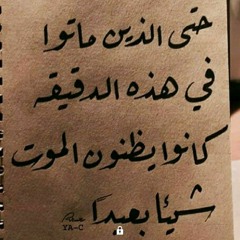 حتى الذين ماتوا
في هذه الدقيقه
كانوا يظنون الموت
شيئا بعيداً
YA-C